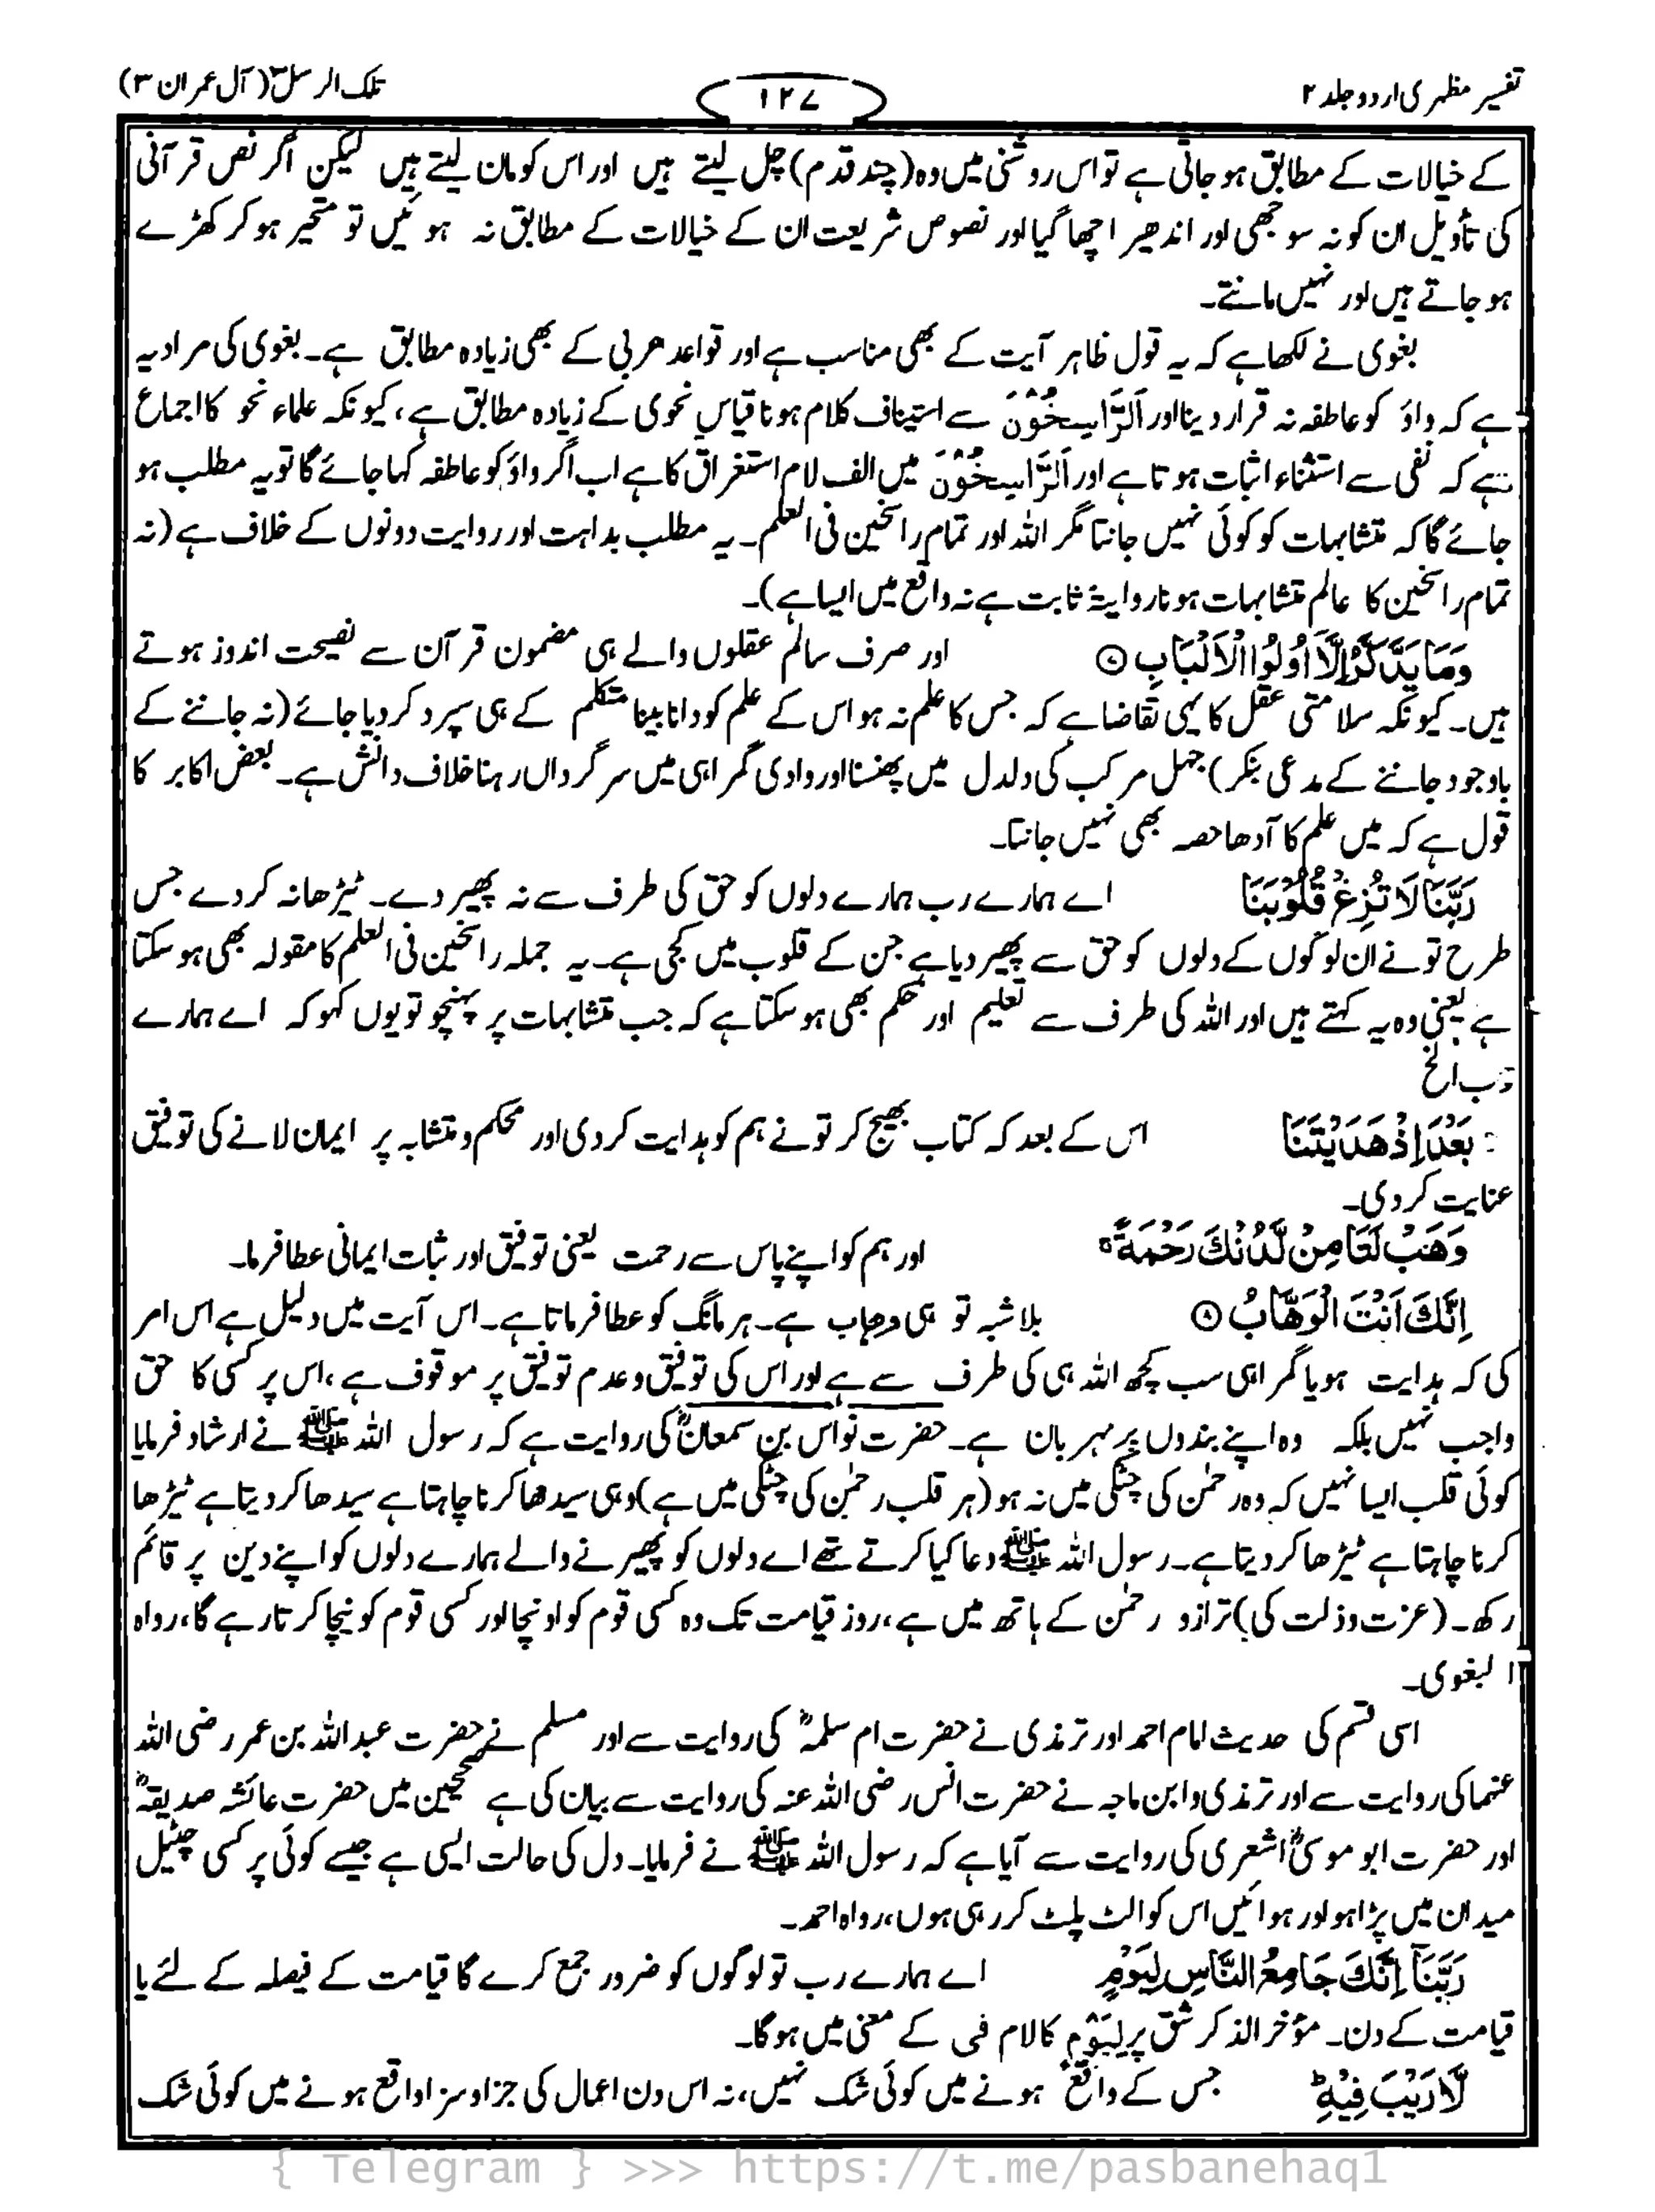 تفسیر مظہری اردو جلد ۲
۱۲۷
تلک الرسل۳ (آل عمران ۳)
کے خیالات کے مطابق ہو جاتی ہے تو اس روشنی میں وہ (چند قدم) چل لیتے ہیں اور اس کو مان لیتے ہیں لیکن اگر نص قرآنی
کی تأویل ان کو نہ سوجھی اور اندھیرا چھا گیا اور نصوص شریعت ان کے خیالات کے مطابق نہ ہوئیں تو متحیر ہو کر کھڑے
ہو جاتے ہیں اور نہیں مانتے۔
بغوی نے لکھا ہے کہ یہ قول ظاہر آیت کے بھی مناسب ہے اور قواعد عربی کے بھی زیادہ مطابق ہے۔ بغوی کی مراد یہ
ہے کہ واؤ کو عاطفہ نہ قرار دینا اور اَلرَّاسِخُوْنَ سے استیناف کلام ہونا قیاس نحوی کے زیادہ مطابق ہے، کیونکہ علماء نحو کا اجماع
ہے کہ نفی سے استثناء اثبات ہوتا ہے اور اَلرَّاسِخُوْنَ میں الف لام استغراق کا ہے اب اگر واؤ کو عاطفہ کہا جائے گا تو یہ مطلب ہو
جائے گا کہ متشابہات کو کوئی نہیں جانتا مگر اللہ اور تمام راسخین فی العلم۔ یہ مطلب بداہت اور روایت دونوں کے خلاف ہے (نہ
تمام راسخین کا عالم متشابہات ہونا روایۃً ثابت ہے نہ واقع میں ایسا ہے)۔
وَمَا يَذَّكَّرُ اِلَّآ اُولُوا الْاَلْبَابِ ۝۷ اور صرف سالم عقلوں والے ہی مضمون قرآن سے نصیحت اندوز ہوتے
ہیں۔ کیونکہ سلامتی عقل کا یہی تقاضا ہے کہ جس کا علم نہ ہو اس کے علم کو دانا بینا متکلم کے ہی سپرد کر دیا جائے (نہ جاننے کے
باوجود جاننے کے مدعی بنکر) جہل مرکب کی دلدل میں پھنسنا اور وادی گمراہی میں سرگرداں رہنا خلاف دانش ہے۔ بعض اکابر کا
قول ہے کہ میں علم کا آدھا حصہ بھی نہیں جانتا۔
رَبَّنَا لَا تُزِغْ قُلُوْبَنَا اے ہمارے رب ہمارے دلوں کو حق کی طرف سے نہ پھیر دے۔ ٹیڑھا نہ کر دے جس
طرح تو نے ان لوگوں کے دلوں کو حق سے پھیر دیا ہے جن کے قلوب میں کجی ہے۔ یہ جملہ راسخین فی العلم کا مقولہ بھی ہو سکتا
ہے یعنی وہ یہ کہتے ہیں اور اللہ کی طرف سے تعلیم اور حکم بھی ہو سکتا ہے کہ جب متشابہات پر پہنچو تو یوں کہو کہ اے ہمارے
رب الخ
بَعْدَ اِذْ هَدَيْتَنَا اس کے بعد کہ کتاب بھیج کر تو نے ہم کو ہدایت کر دی اور محکم و متشابہ پر ایمان لانے کی توفیق
عنایت کر دی۔
وَهَبْ لَنَا مِنْ لَّدُنْكَ رَحْمَةً اور ہم کو اپنے پاس سے رحمت یعنی توفیق اور ثبات ایمانی عطا فرما۔
اِنَّكَ اَنْتَ الْوَهَّابُ ۝۸ بلا شبہ تو ہی وہاب ہے۔ ہر مانگ کو عطا فرماتا ہے۔ اس آیت میں دلیل ہے اس امر
کی کہ ہدایت ہو یا گمراہی سب کچھ اللہ ہی کی طرف سے ہے اور اس کی توفیق و عدم توفیق پر موقوف ہے، اس پر کسی کا حق
واجب نہیں بلکہ وہ اپنے بندوں پر مہربان ہے۔ حضرت نواس بن سمعانؓ کی روایت ہے کہ رسول اللہ ﷺ نے ارشاد فرمایا
کوئی قلب ایسا نہیں کہ وہ رحمٰن کی چٹکی میں نہ ہو (ہر قلب رحمٰن کی چٹکی میں ہے) وہی سیدھا کرنا چاہتا ہے سیدھا کر دیتا ہے ٹیڑھا
کرنا چاہتا ہے ٹیڑھا کر دیتا ہے۔ رسول اللہ ﷺ دعا کیا کرتے تھے اے دلوں کو پھیرنے والے ہمارے دلوں کو اپنے دین پر قائم
رکھ۔ (عزت و ذلت کی) ترازو رحمٰن کے ہاتھ میں ہے، روز قیامت تک وہ کسی قوم کو اونچا اور کسی قوم کو نیچا کرتا رہے گا، رواہ
البغوی۔
اسی قسم کی حدیث امام احمد اور ترمذی نے حضرت ام سلمہؓ کی روایت سے اور مسلم نے حضرت عبداللہ بن عمر رضی اللہ
عنہما کی روایت سے اور ترمذی و ابن ماجہ نے حضرت انس رضی اللہ عنہ کی روایت سے بیان کی ہے صحیحین میں حضرت عائشہ صدیقہؓ
اور حضرت ابو موسیٰؓ اشعری کی روایت سے آیا ہے کہ رسول اللہ ﷺ نے فرمایا۔ دل کی حالت ایسی ہے جیسے کوئی پر کسی چٹیل
میدان میں پڑا ہو اور ہوائیں اس کو الٹ پلٹ کر رہی ہوں، رواہ احمد۔
رَبَّنَآ اِنَّكَ جَامِعُ النَّاسِ لِيَوْمٍ اے ہمارے رب تو لوگوں کو ضرور جمع کرے گا قیامت کے فیصلہ کے لئے یا
قیامت کے دن۔ مؤخر الذکر شق پر لِيَوْمٍ کا لام فی کے معنی میں ہوگا۔
لَّا رَيْبَ فِيْهِ ؕ جس کے واقع ہونے میں کوئی شک نہیں، نہ اس دن اعمال کی جزا و سزا واقع ہونے میں کوئی شک
{ Telegram } >>> https://t.me/pasbanehaq1